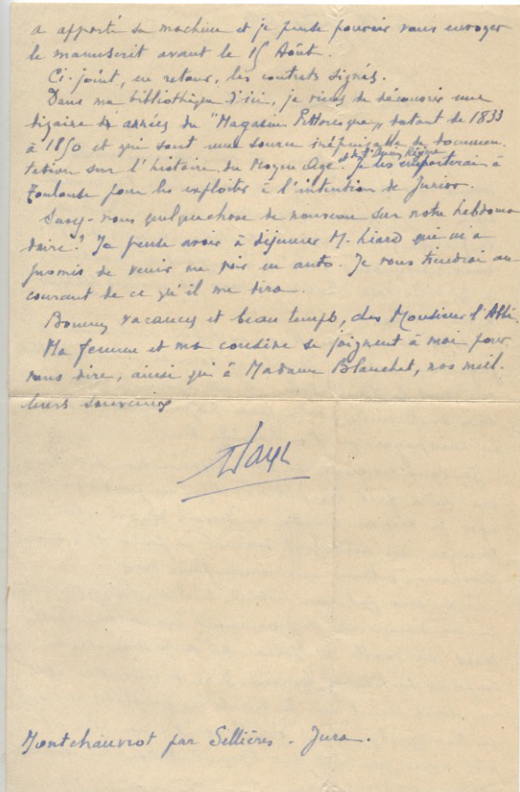 a apporté sa machine et je pense pouvoir vous envoyer
le manuscrit avant le 15 Août.
Ci-joint, en retour, les contrats signés.
Dans ma bibliothèque d'ici, je viens de découvrir une
dizaine d'années du "Magasin Pittoresque" datant de 1833
à 1850 et qui sont une source inépuisable de documen
tation sur l'histoire du Moyen Age et de l'Ancien Régime. Je les emporterai à
Toulouse pour les exploiter à l'intention de Junior.
Savez-vous quelque chose de nouveau sur notre hebdoma
daire? Je pense avoir à déjeuner M. Liard qui m'a
promis de venir me voir en auto. Je vous tiendrai au
courant de ce qu'il me dira.
Bonnes vacances et beau temps, cher Monsieur l'Abbé.
Ma femme et ma cousine se joignent à moi pour
vous dire, ainsi qu'à Madame Blanchet, nos meil-
leurs souvenirs
Montchauvrot par Sellières - Jura.